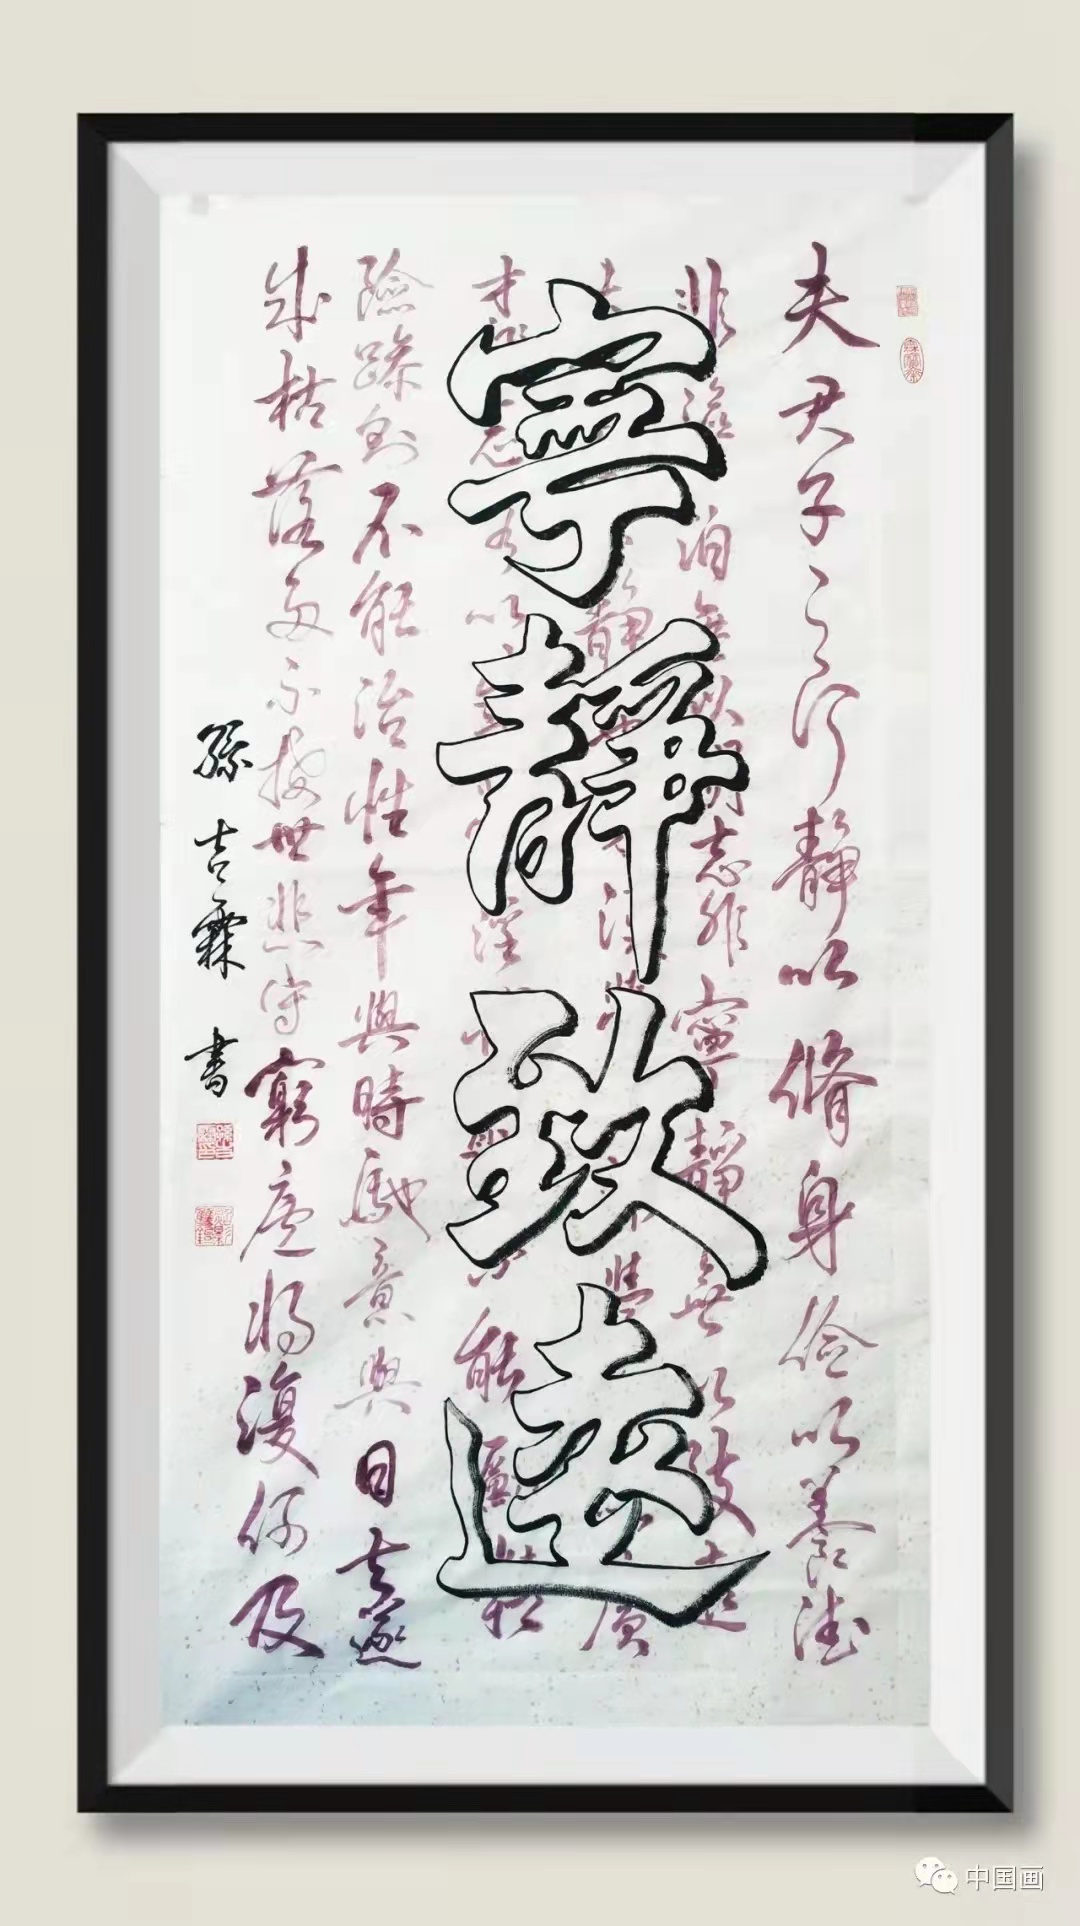 寧靜致遠
夫君子之行靜以脩身儉以養德
非澹泊無以明志非寧靜無以致遠
靜 廣
才 志 以 淫 學 不能勵精
險躁則不能治性年與時馳意與日去遂
成枯落多不接世悲守窮廬將復何及
孫吉霖書
中国画